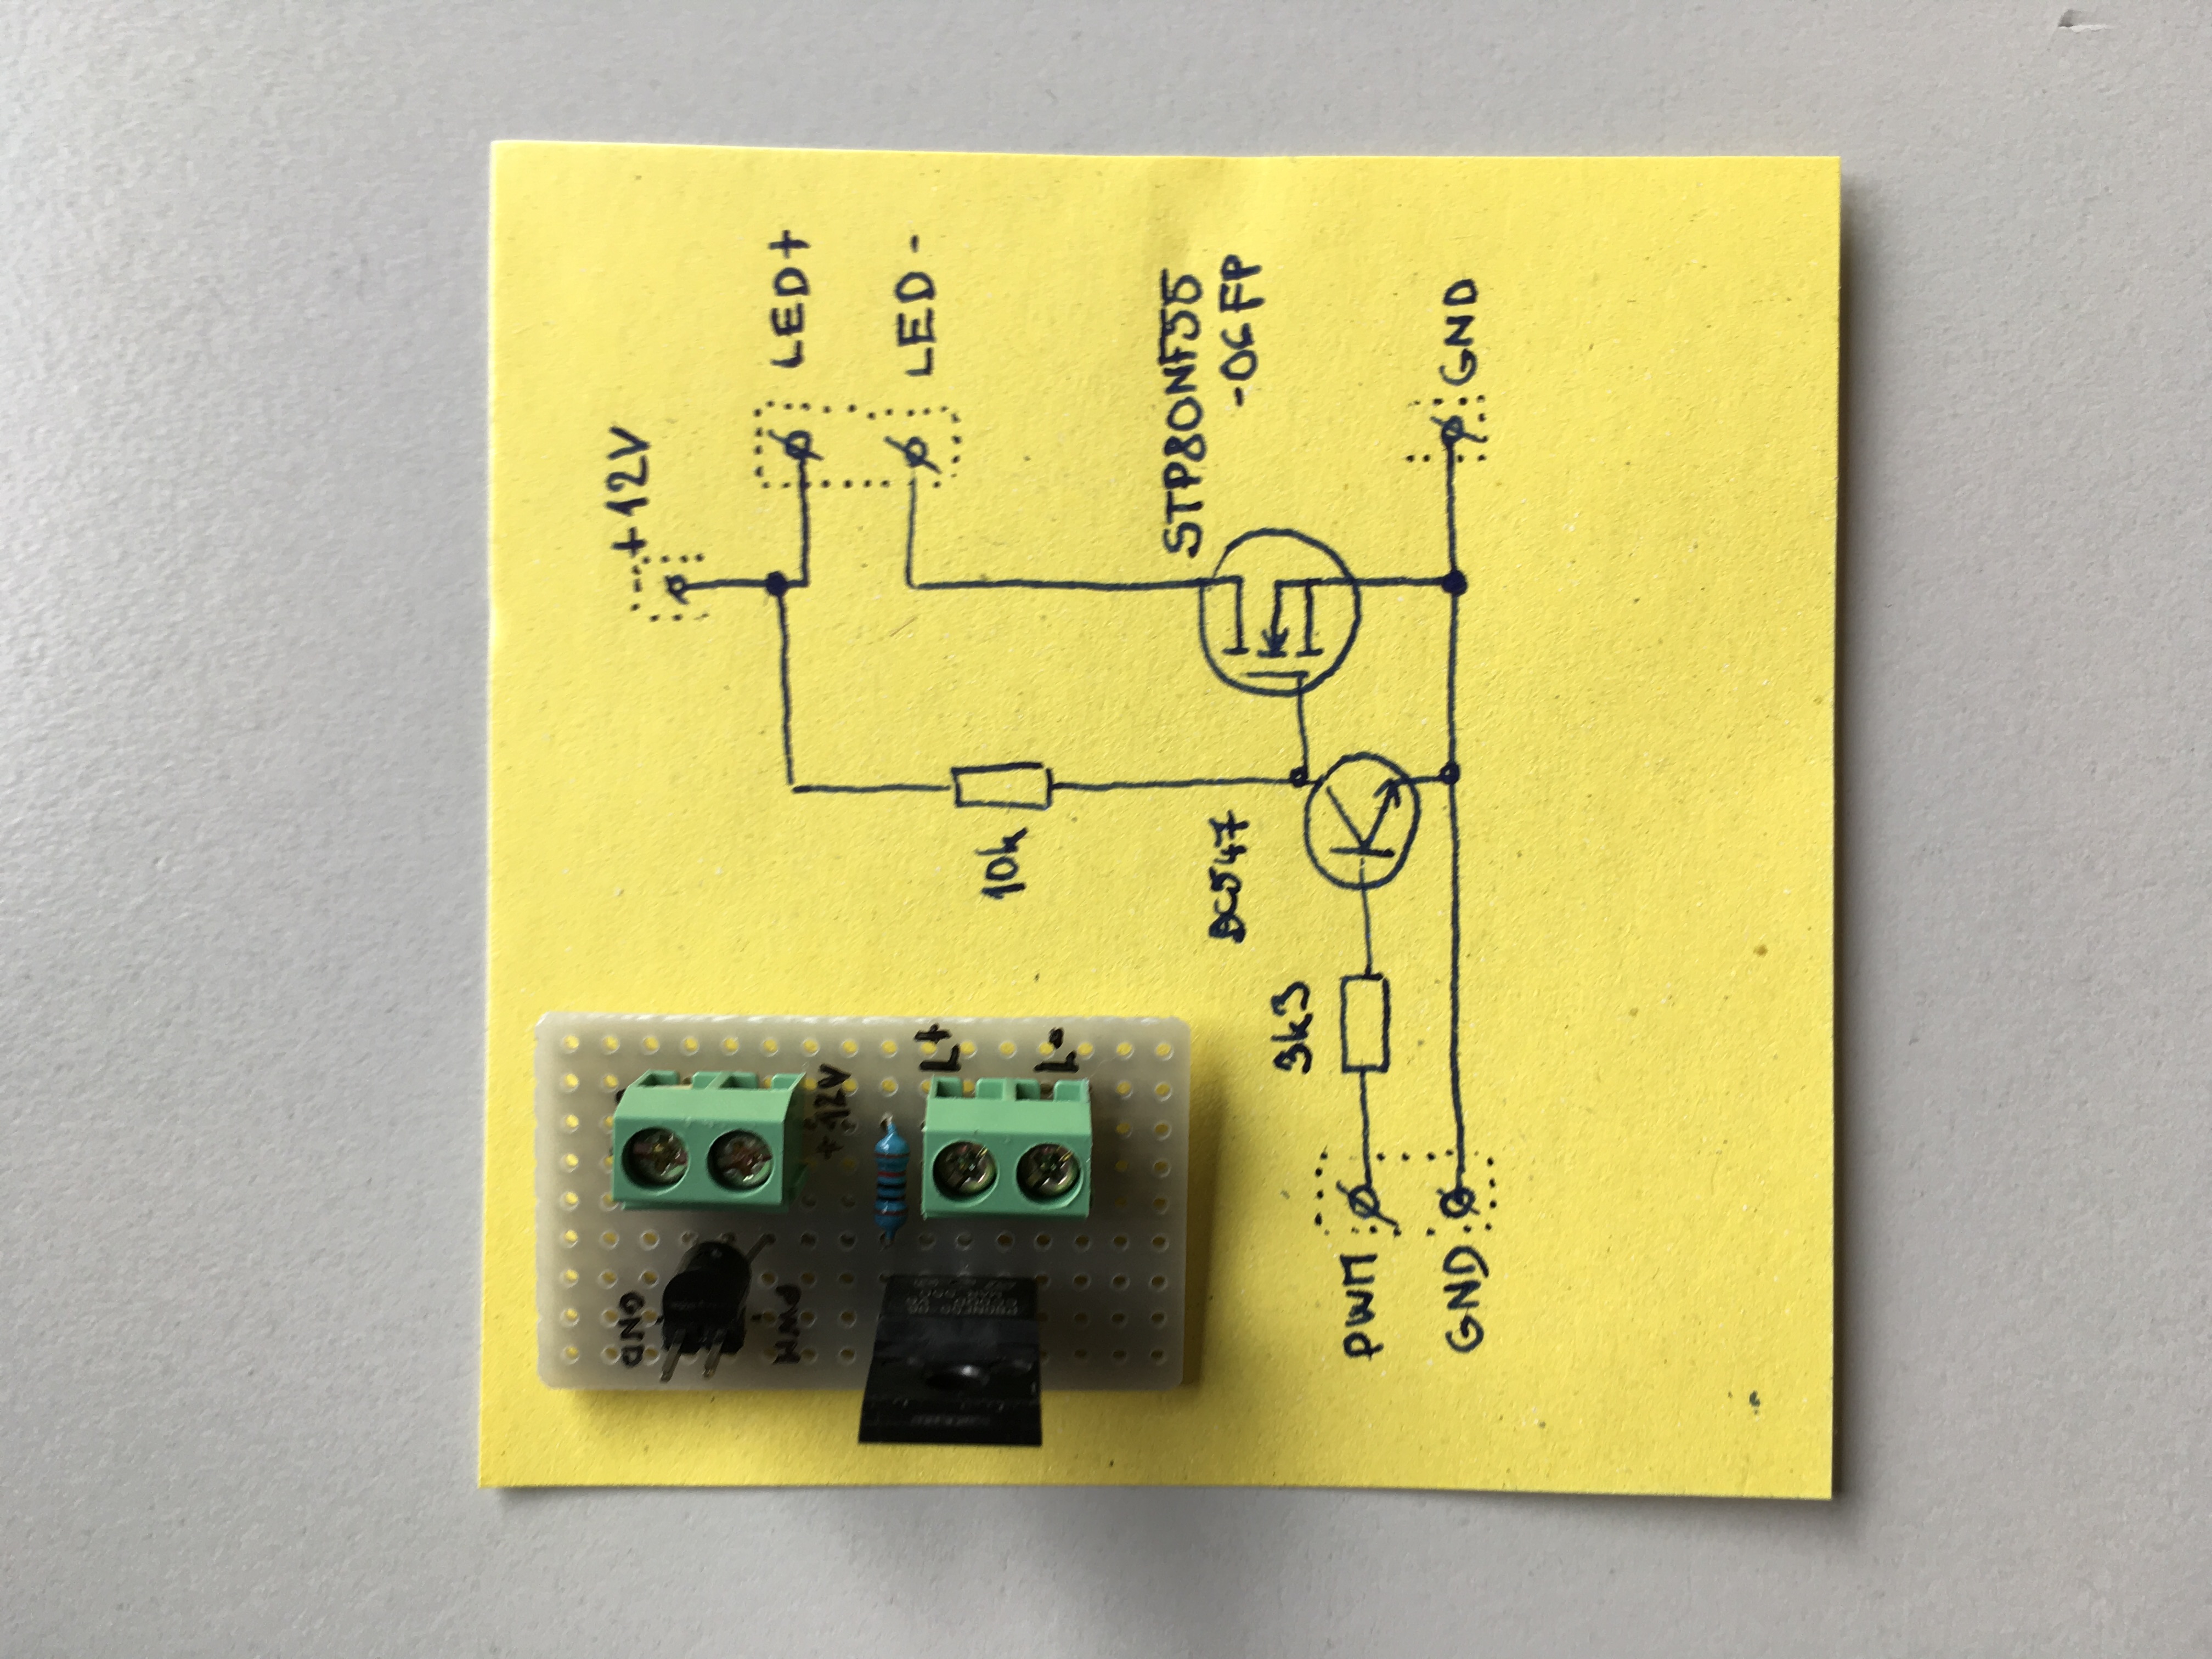 GND
PWM
+12V
L+
L-
+12V
LED+
LED-
10k
STP80NF55
-06FP
BC547
3k3
PWM
GND
GND